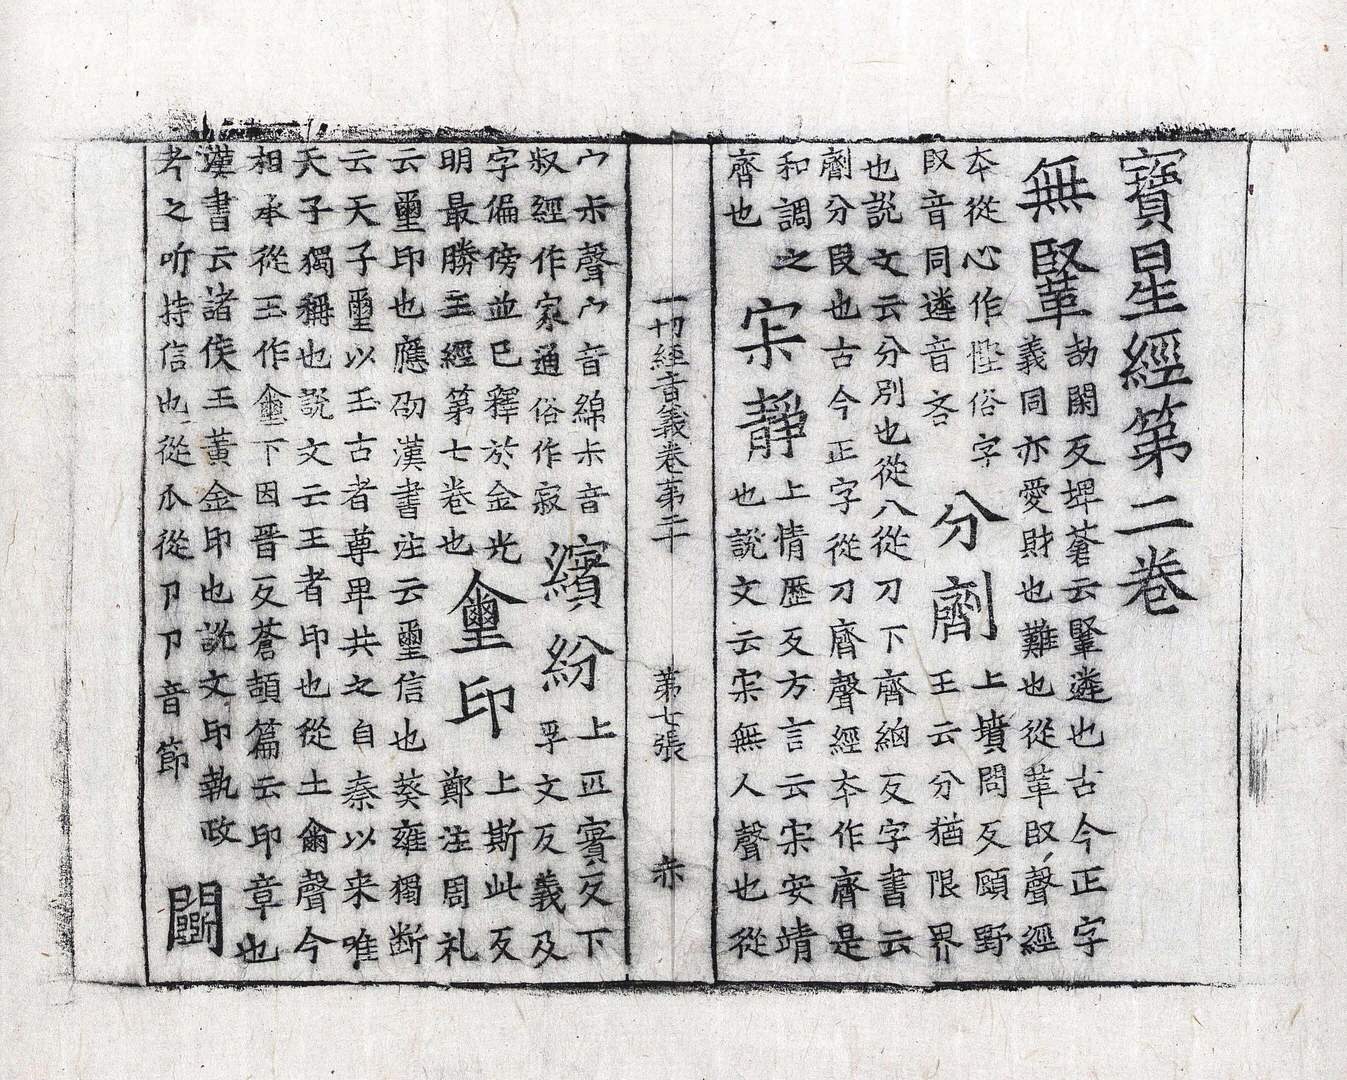 寶星經第二卷
無
劫閑反埤蒼云遴也古今正字
義同亦愛財也難也從革臤聲經
夲從心作慳俗字
臤音同遴音吝
分劑
上墳問反顧野
王云分猶限界
也說文云分別也從八從刀下齊細反字書云
劑分段也古今正字從刀齊聲經夲作齊是
和調之
齊也
宋靜
上情歷反方言云宋安靖
也說文云宋無人聲也從
一切經音義卷第二十 第七張 赤
宀尗聲宀音綿尗音
叔經作家通俗作寂
繽紛
上匹賓反下
孚文反義及
字偏傍並巳釋於金光
明最勝王經第七卷也
璽印
上斯此反
鄭注周礼
云璽印也應劭漢書注云璽信也蔡雍獨断
云天子璽以玉古者尊卑共之自秦以来唯
天子獨稱也說文云王者印也從土爾聲今
相承從玉作璽下因晉反蒼頡篇云印章也
漢書云諸侯王黃金印也說文印執政
者之所持信也從爪從卩卩音節
鬭